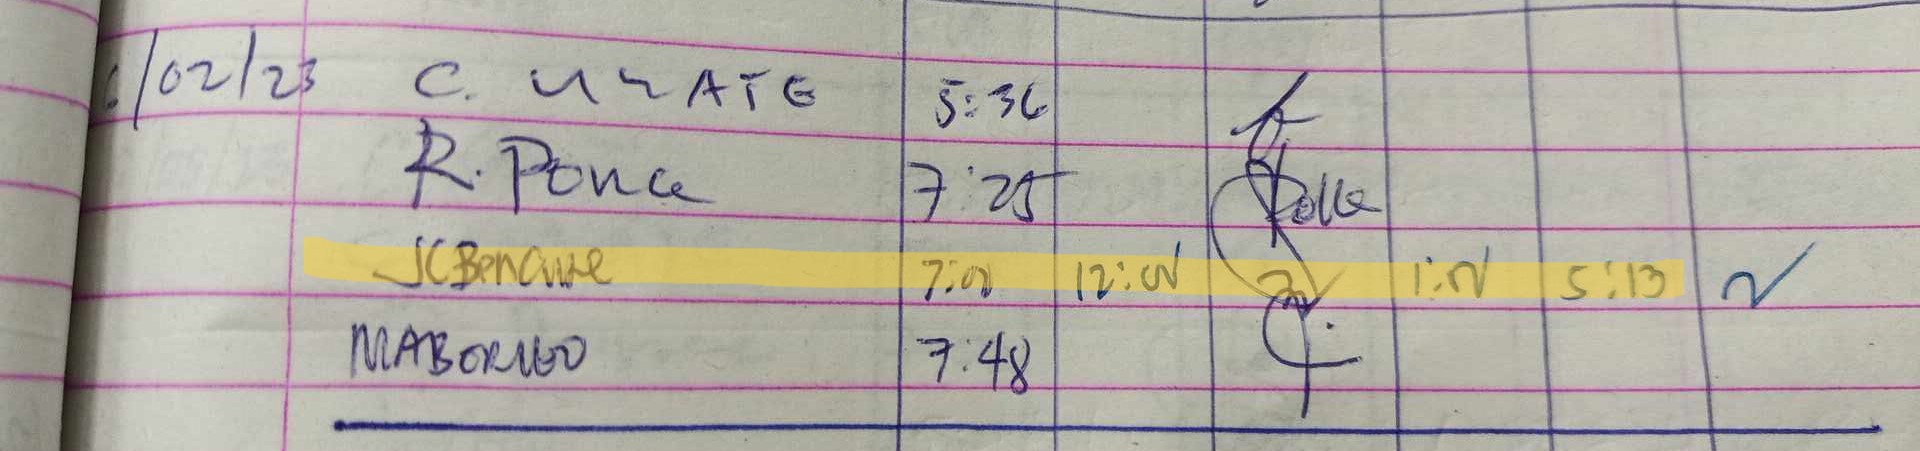 /02/23 C. URATE 5:36
R. Ponce 7:25
JCBencure 7:00 12:00 1:00 5:13
MABORNEO 7:48